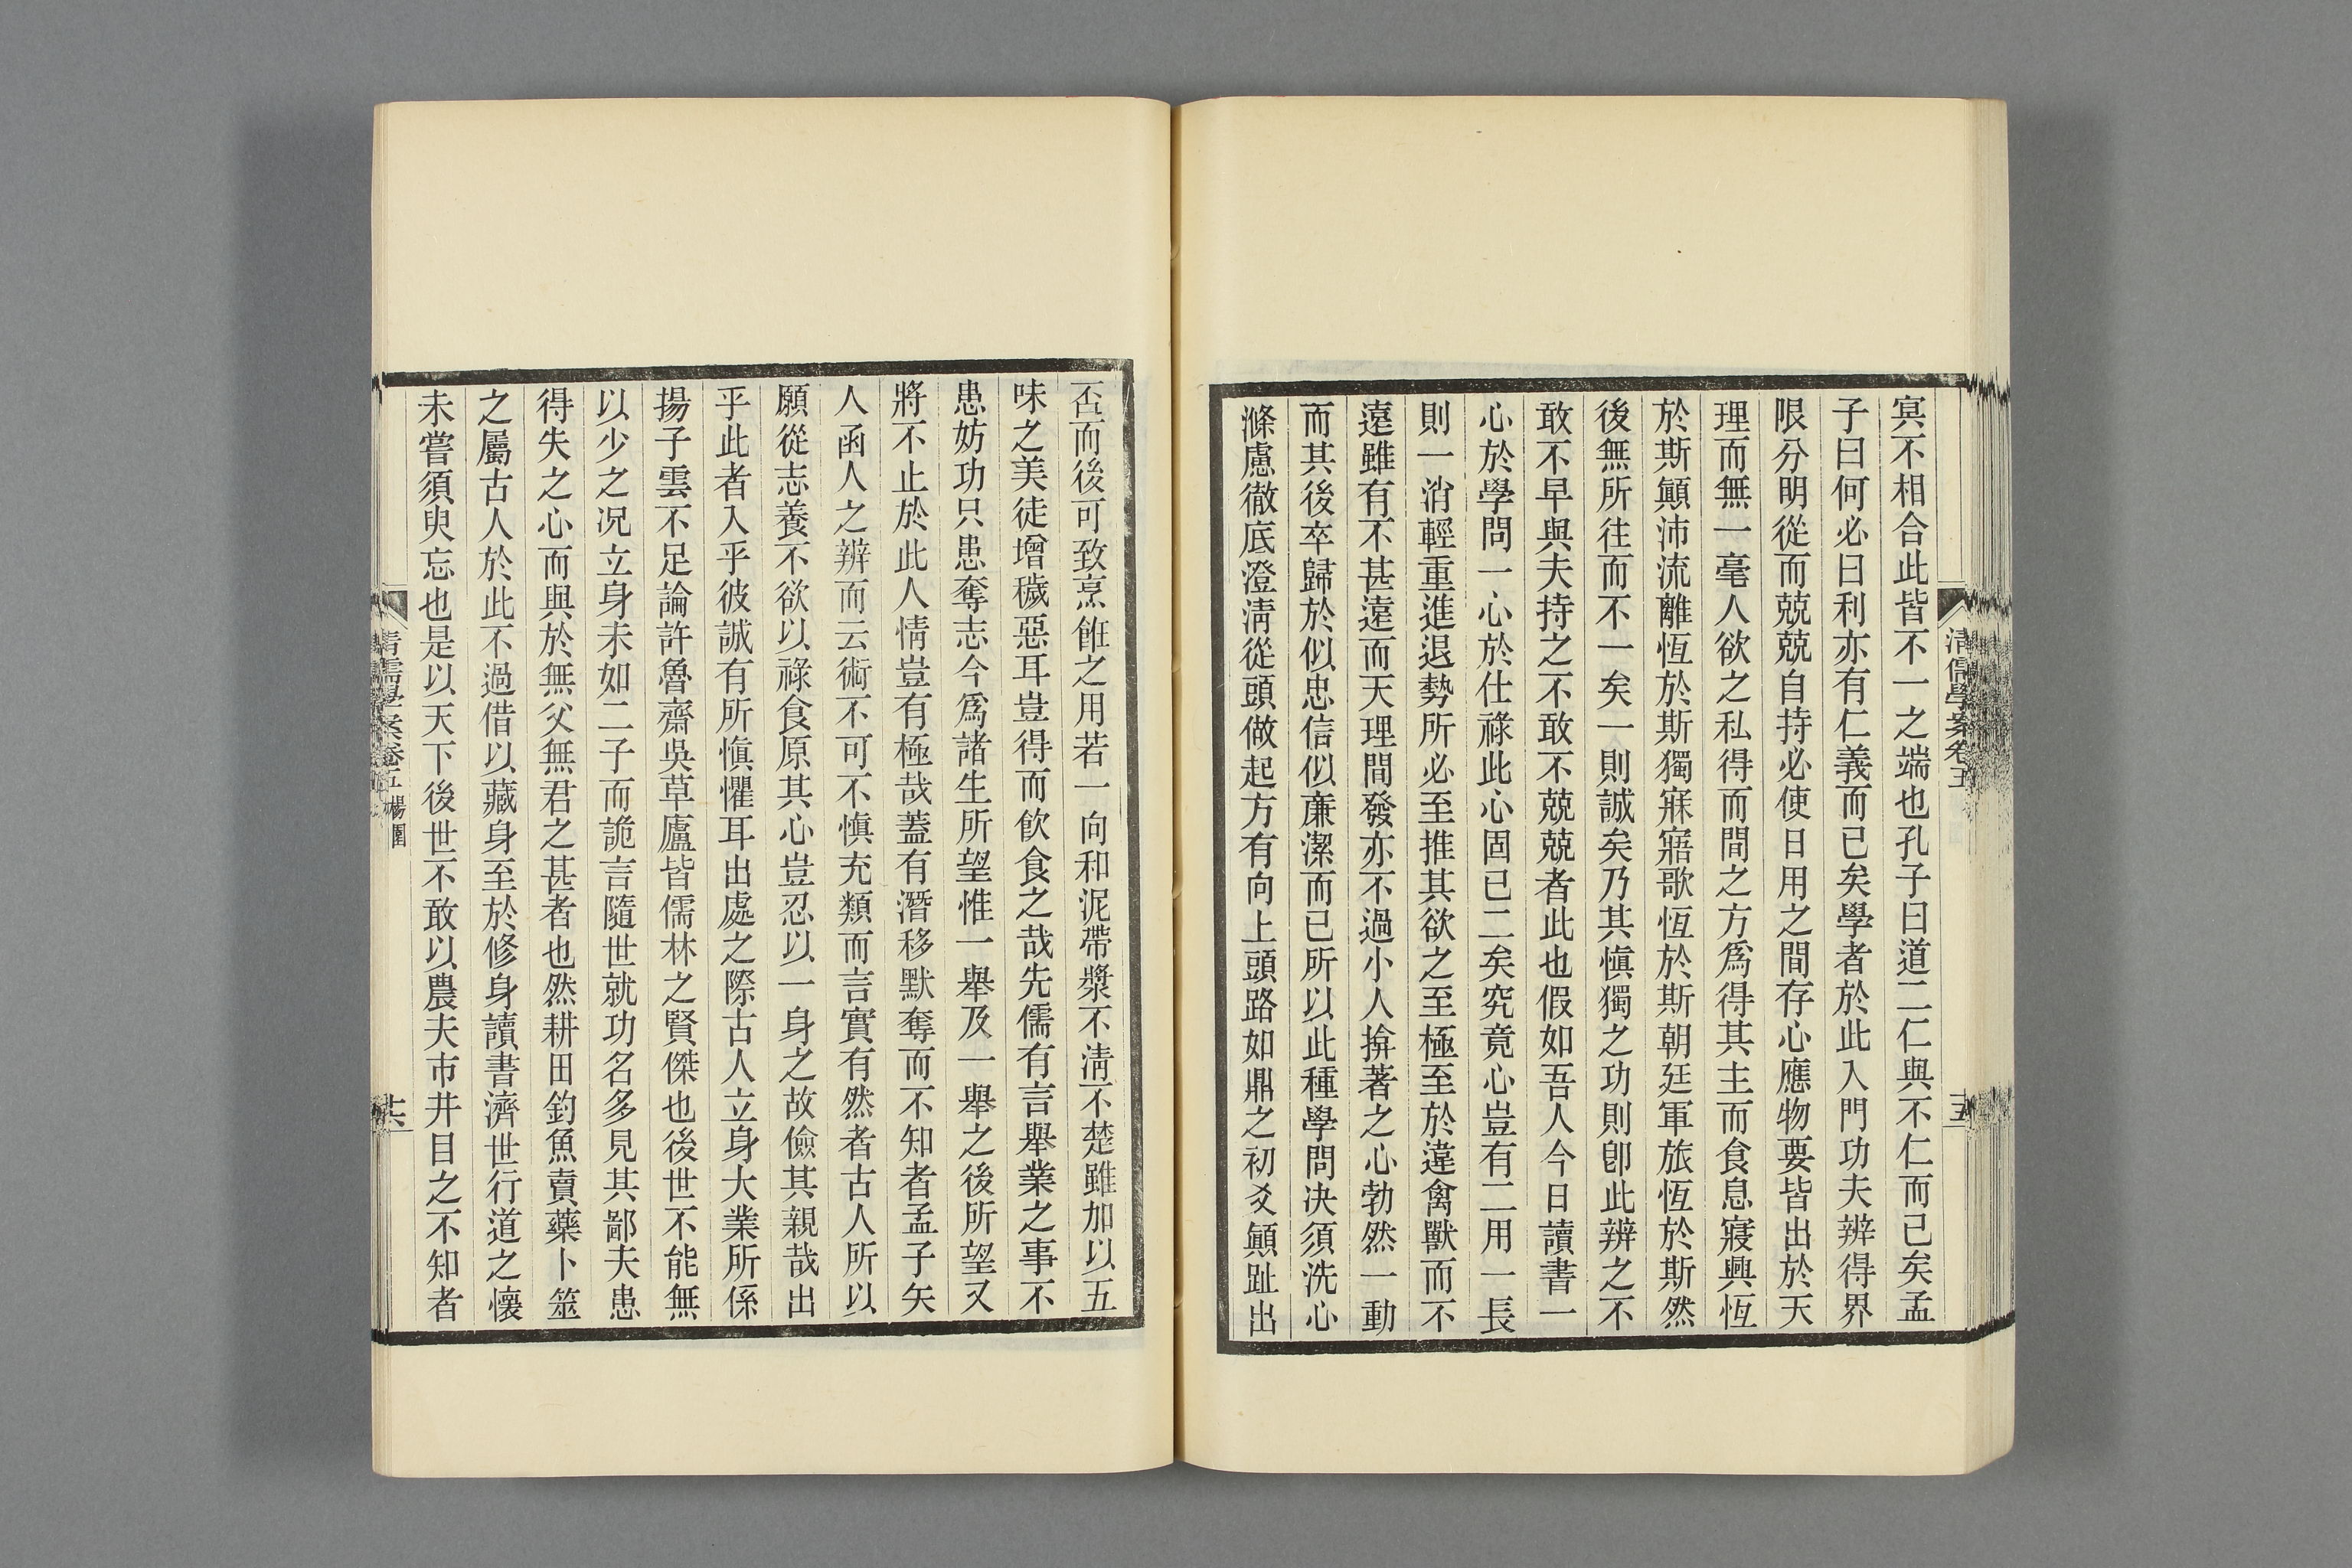 清儒學案卷五
十五
冥不相合此皆不一之端也孔子曰道二仁與不仁而已矣孟
子曰何必曰利亦有仁義而已矣學者於此入門功夫辨得界
限分明從而兢兢自持必使日用之間存心應物要皆出於天
理而無一毫人欲之私得而間之方爲得其主而食息寢興恆
於斯顚沛流離恆於斯獨寐寤歌恆於斯朝廷軍旅恆於斯然
後無所往而不一矣一則誠矣乃其愼獨之功則卽此辨之不
敢不早與夫持之不敢不兢兢者此也假如吾人今日讀書一
心於學問一心於仕祿此心固已二矣究竟心豈有二用一長
則一消輕重進退勢所必至推其欲之至極至於違禽獸而不
遠雖有不甚遠而天理間發亦不過小人揜著之心勃然一動
而其後卒歸於似忠信似廉潔而已所以此種學問決須洗心
滌慮徹底澄淸從頭做起方有向上頭路如鼎之初爻顚趾出
否而後可致烹飪之用若一向和泥帶漿不淸不楚雖加以五
味之美徒增穢惡耳豈得而飲食之哉先儒有言舉業之事不
患妨功只患奪志今爲諸生所望惟一舉及一舉之後所望又
將不止於此人情豈有極哉蓋有潛移默奪而不知者孟子矢
人函人之辨而云術不可不愼充類而言實有然者古人所以
願從志養不欲以祿食原其心豈忍以一身之故儉其親哉出
乎此者入乎彼誠有所愼懼耳出處之際古人立身大業所係
揚子雲不足論許魯齋吳草廬皆儒林之賢傑也後世不能無
以少之况立身未如二子而詭言隨世就功名多見其鄙夫患
得失之心而與於無父無君之甚者也然耕田釣魚賣藥卜筮
之屬古人於此不過借以藏身至於修身讀書濟世行道之懷
未嘗須臾忘也是以天下後世不敢以農夫市井目之不知者
清儒學案卷五 楊園
十六